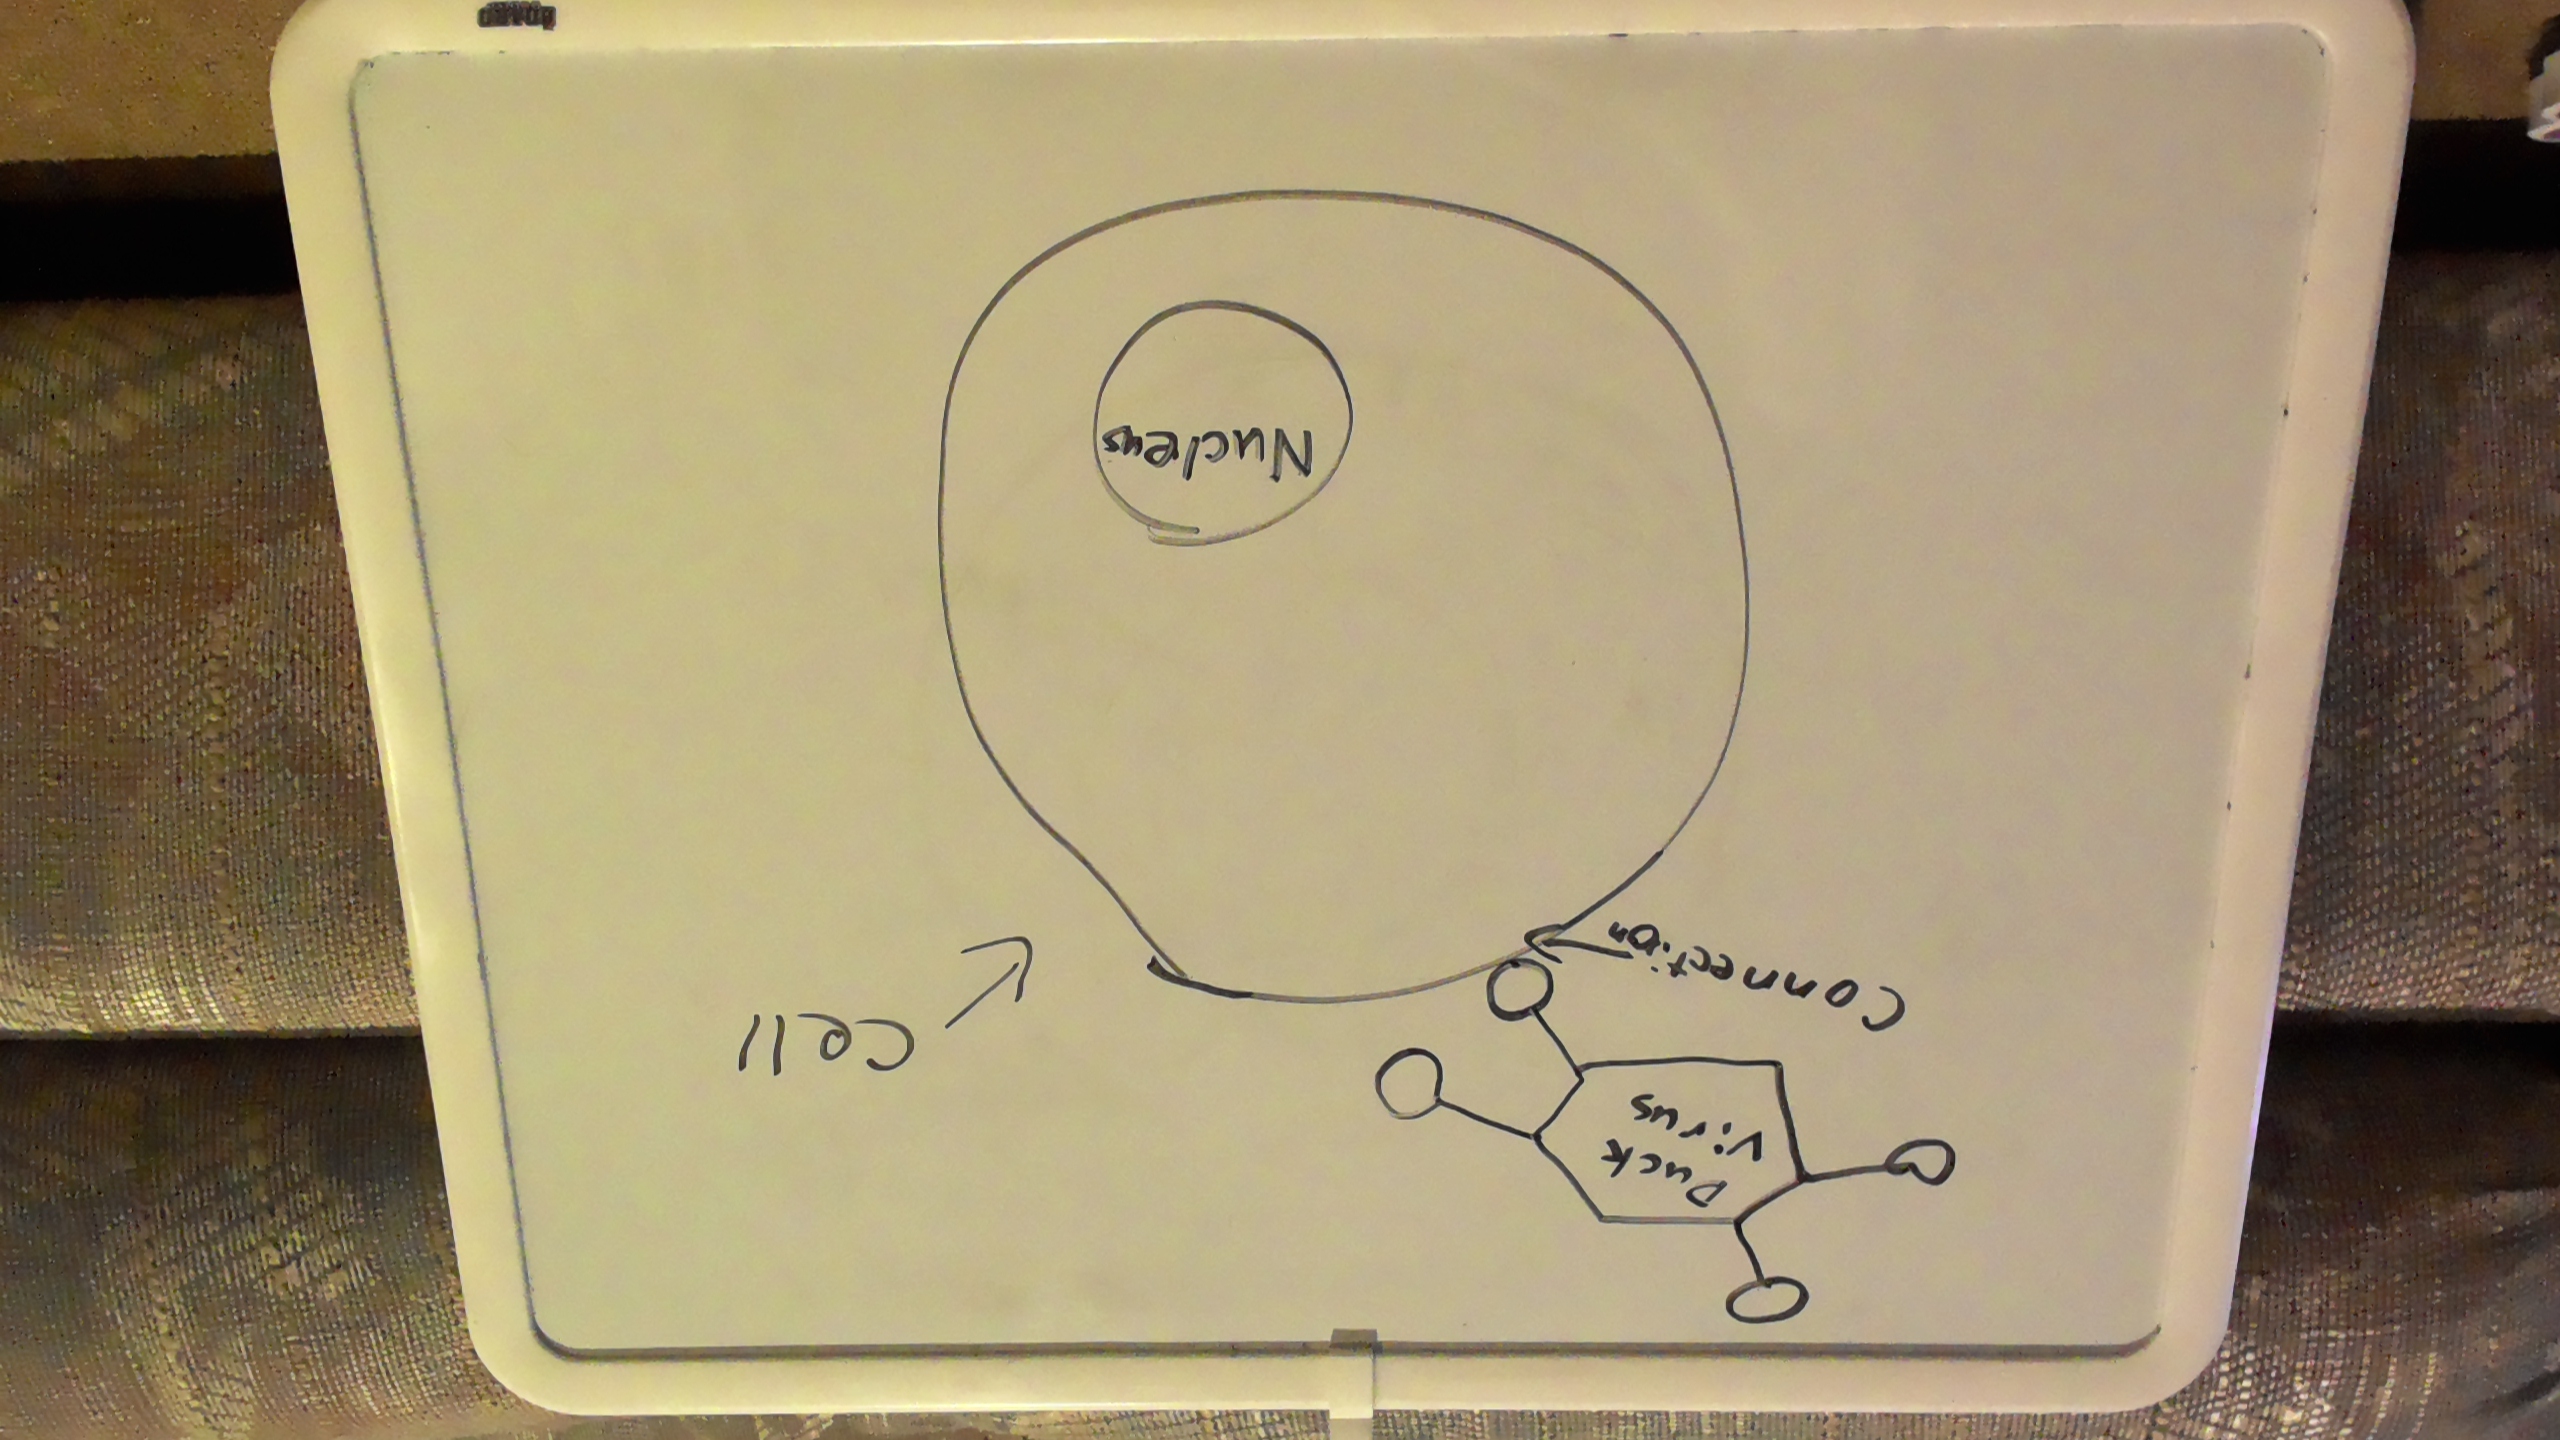 Duck
Virus
Connection
Cell
Nucleus